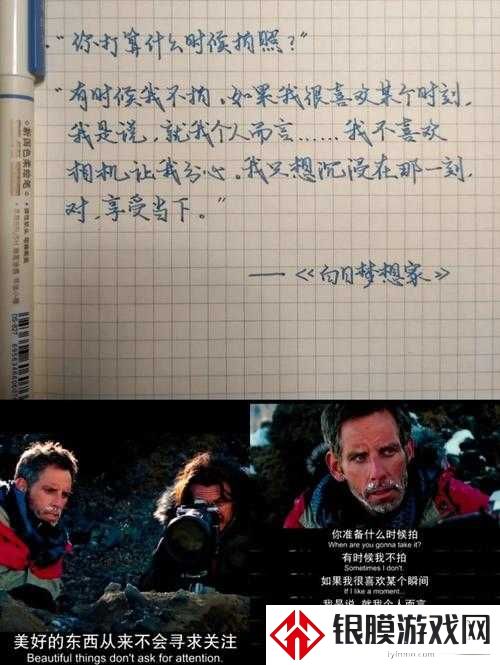 “你打算什么时候拍照？”
“有时候我不拍，如果我很喜欢某个时刻，
我是说，就我个人而言……我不喜欢
相机让我分心。我只想沉浸在那一刻，
对，享受当下。”
——《白日梦想家》
美好的东西从来不会寻求关注
Beautiful things don't ask for attention.
你准备什么时候拍
When are you gonna take it?
有时候我不拍
Sometimes I don't.
如果我很喜欢某个瞬间
If I like a moment...
我是说 就我个人而言
银膜游戏网